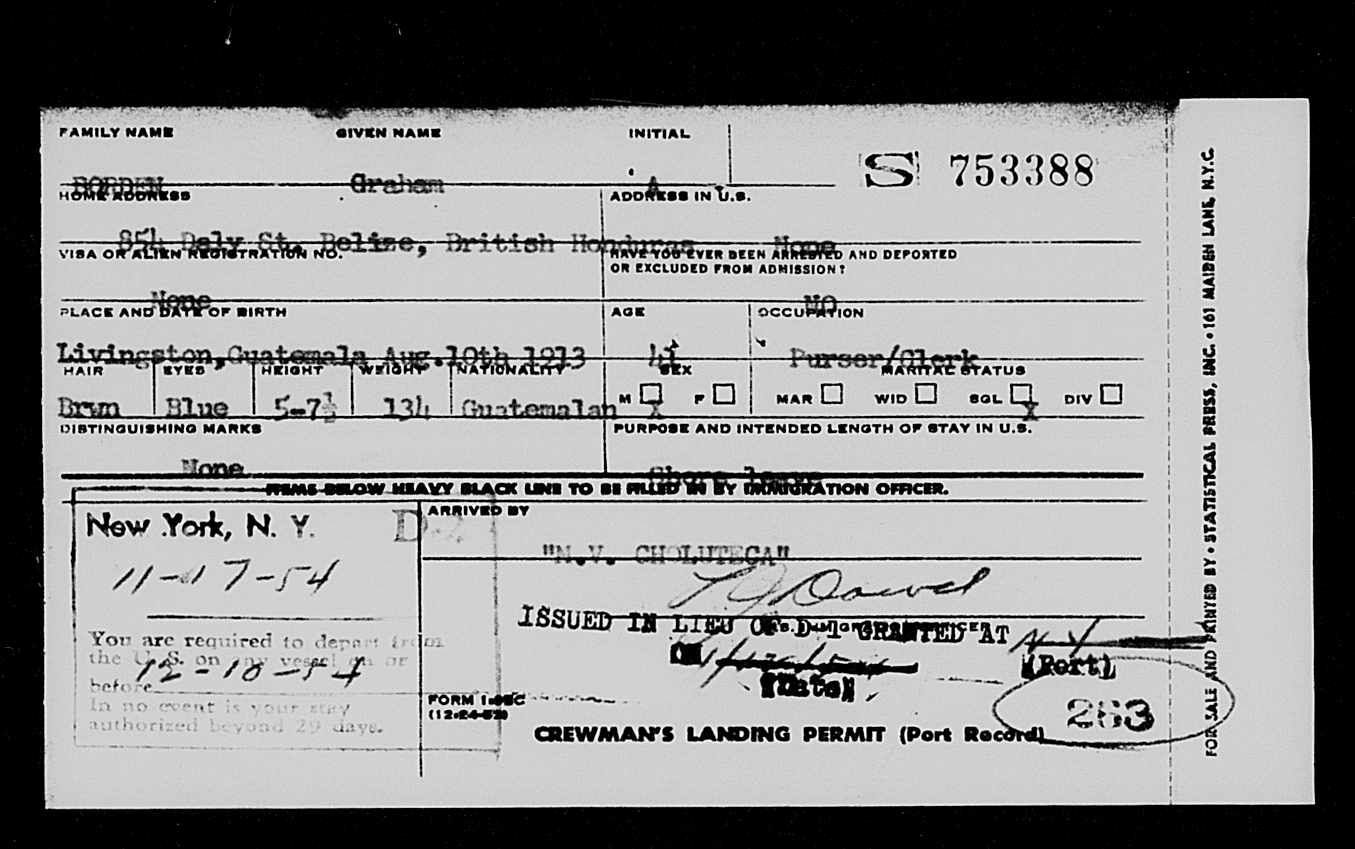 FAMILY NAME GIVEN NAME INITIAL
BORDEN Graham A
S 753388
HOME ADDRESS ADDRESS IN U.S.
854 Daly St. Belize, British Honduras None
VISA OR ALIEN REGISTRATION NO. HAVE YOU EVER BEEN ARRESTED AND DEPORTED
OR EXCLUDED FROM ADMISSION?
None NO
PLACE AND DATE OF BIRTH AGE OCCUPATION
Livingston, Guatemala Aug. 10th 1913 41 Purser/Clerk
HAIR EYES HEIGHT WEIGHT NATIONALITY SEX MARITAL STATUS
M F MAR WID SGL DIV
Brwn Blue 5-7½ 134 Guatemalan X X
DISTINGUISHING MARKS PURPOSE AND INTENDED LENGTH OF STAY IN U.S.
None Shore leave
ITEMS BELOW HEAVY BLACK LINE TO BE FILLED IN BY IMMIGRATION OFFICER.
New York, N. Y.
11-17-54
You are required to depart from
the U. S. on any vessel on or
before 12-10-54
In no event is your stay
authorized beyond 29 days.
ARRIVED BY
"N.V. CHOLUTECA"
ISSUED IN LIEU OF D-1 GRANTED AT N Y
(Port)
(Date)
FORM I-95C
(12-24-52)
263
CREWMAN'S LANDING PERMIT (Port Record)
FOR SALE AND PRINTED BY • STATISTICAL PRESS, INC. • 161 MAIDEN LANE, N.Y.C.